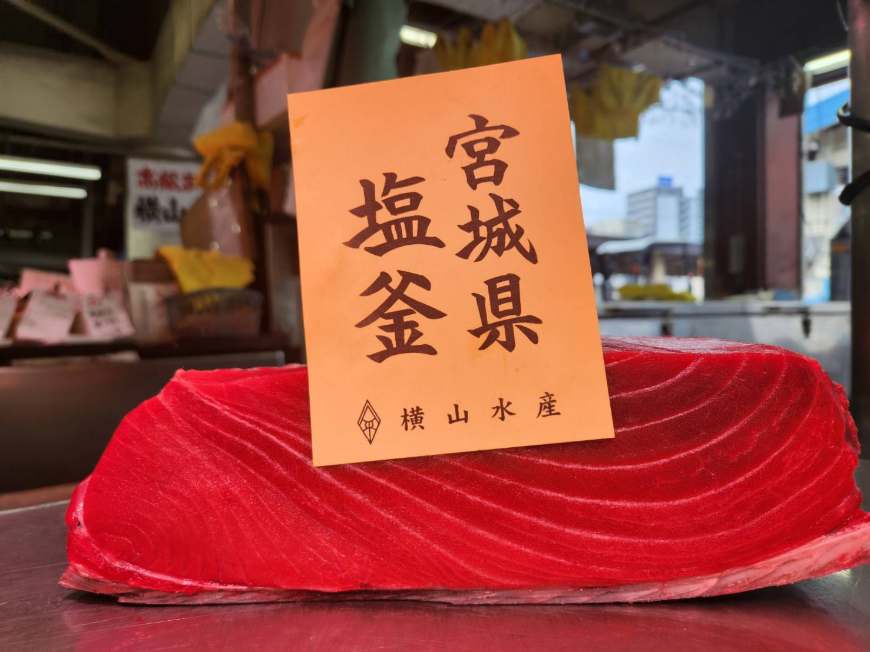 宮城県
塩釜
横山水産
横山